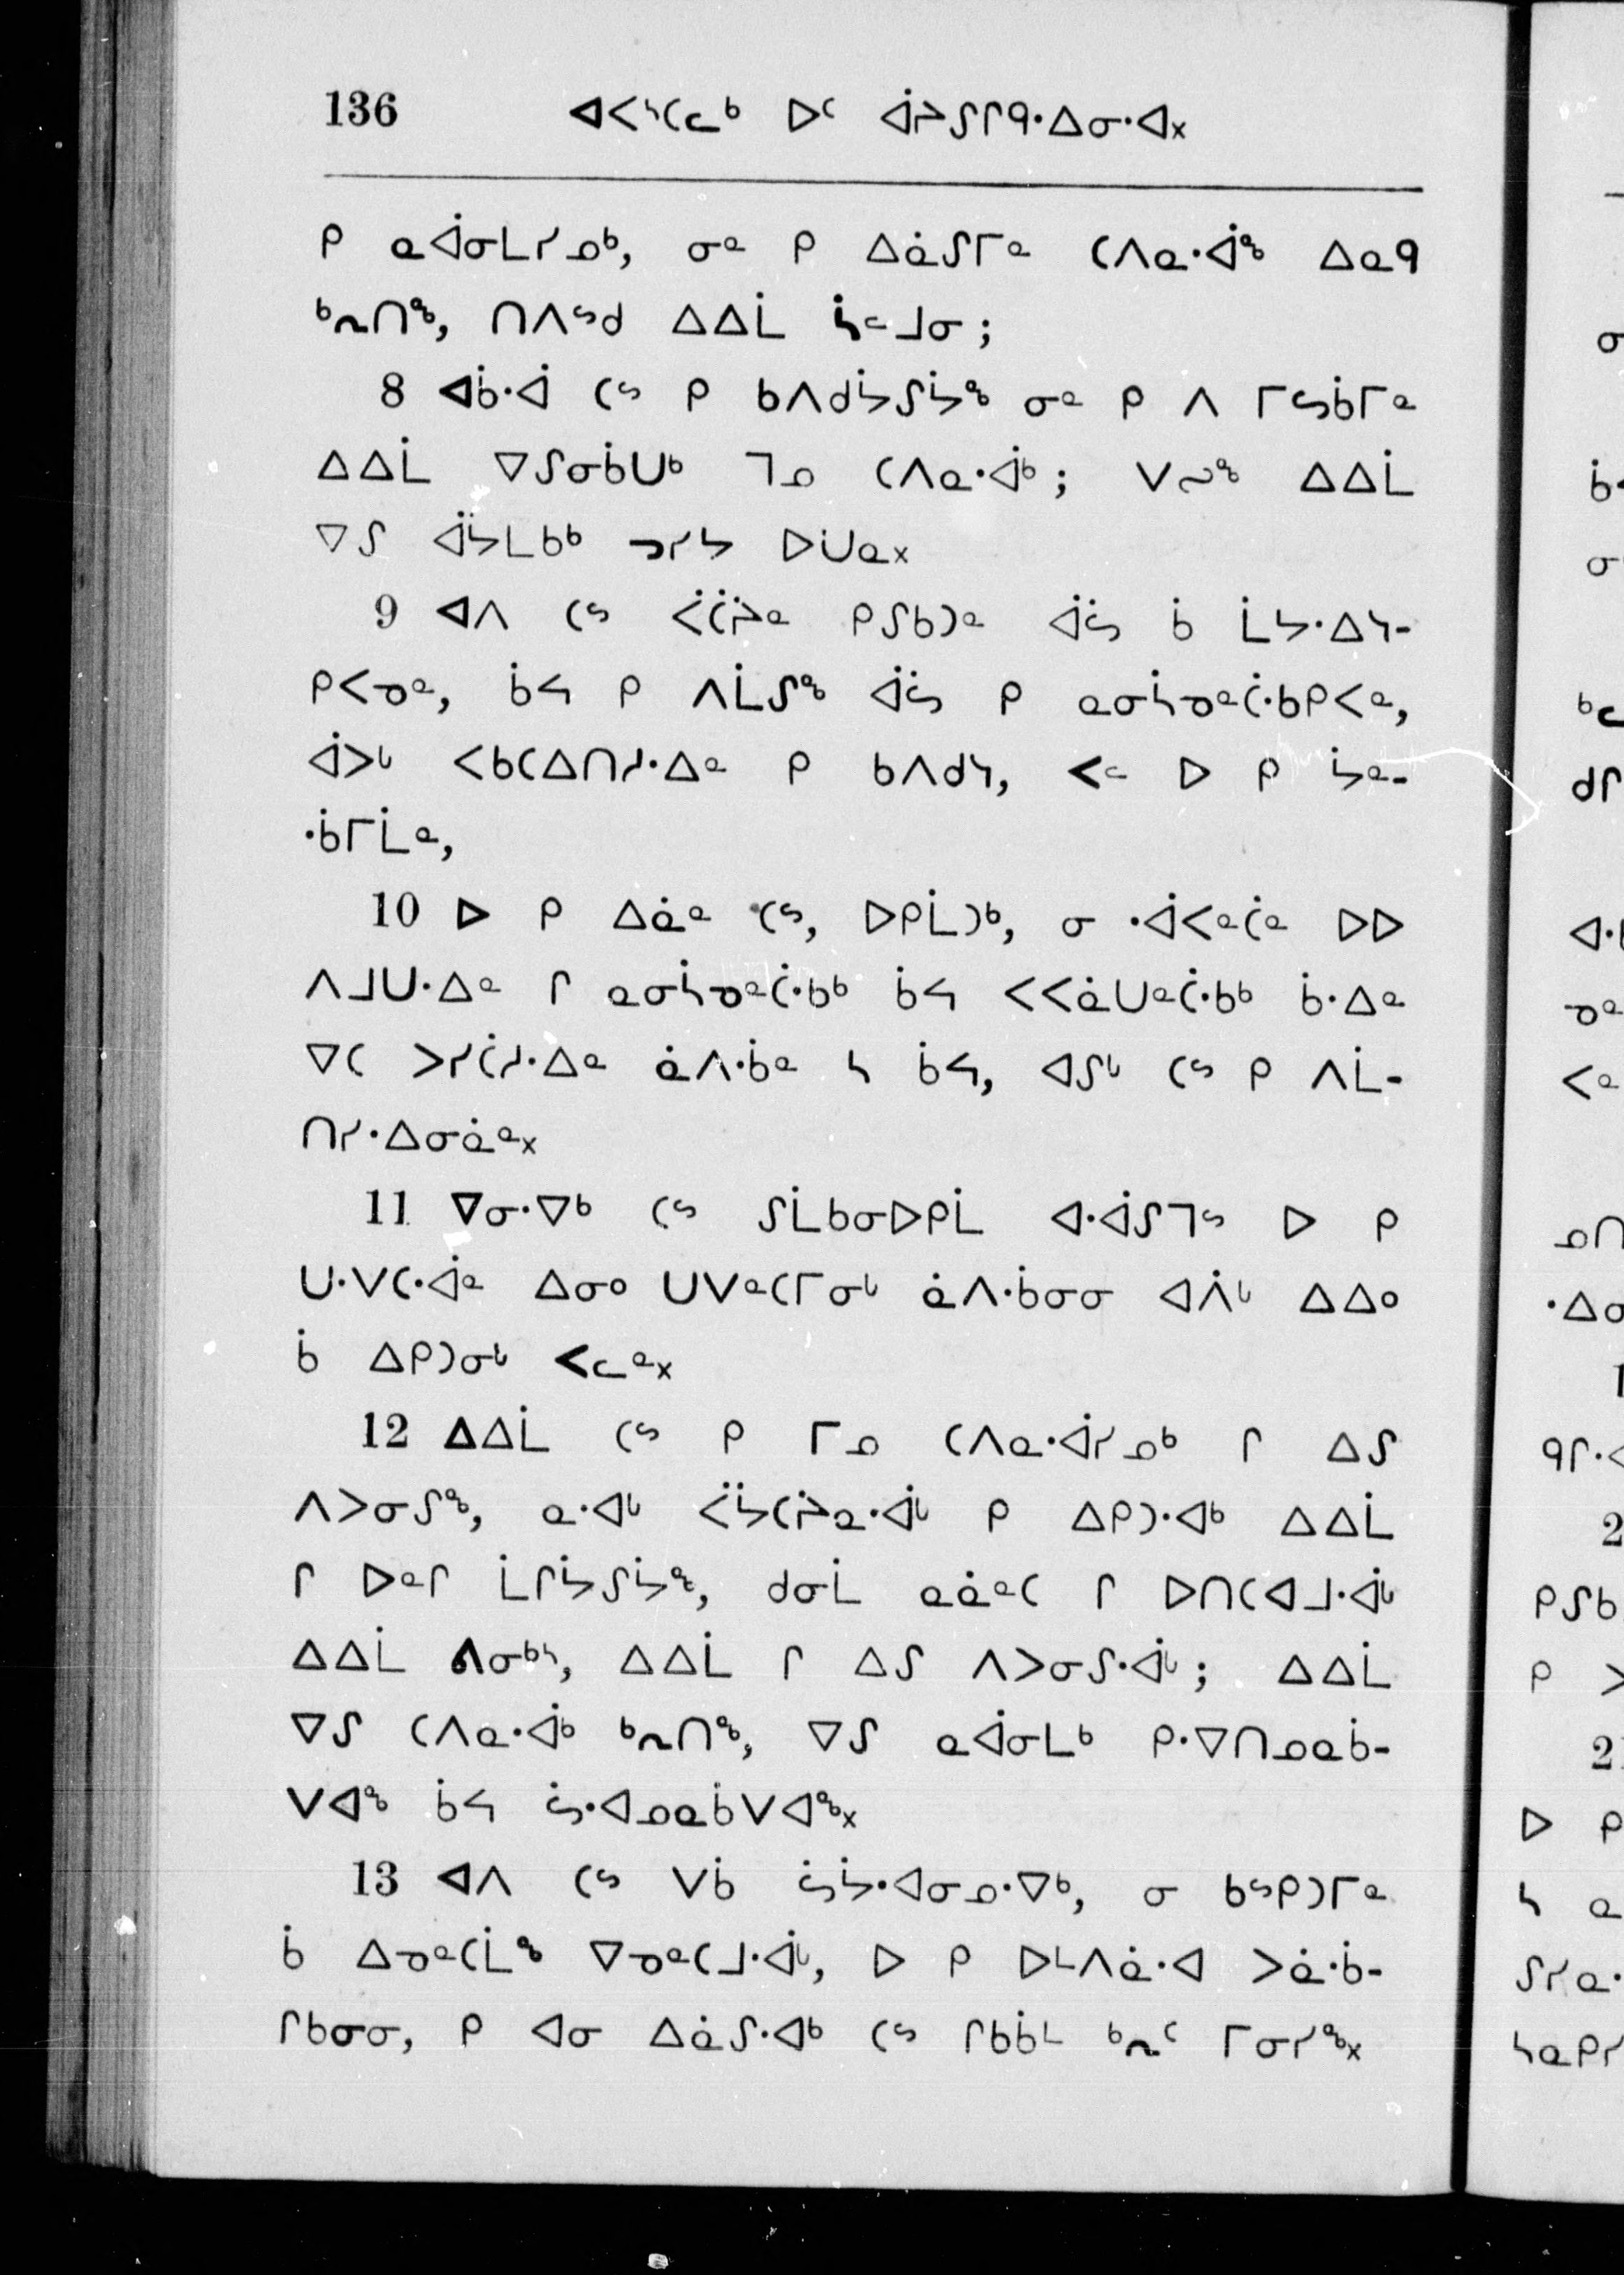 136 ᐊᐸᔅᑕᓚᒃ ᐅᑦ ᐋᔨᔑᒋᑫᐧᐃᓂᐧᐊ᙮
ᑭ ᓇᐋᓂᒪᓯᓄᒃ, ᓂᓐ ᑭ ᐃᓈᔑᒥᓐ ᑕᐱᓇᐧᐋᒄ ᐃᓇᑫ
ᒃᖬᑎᒄ, ᑎᐱᔥᑯ ᐃᐃᒫ ᓵᓪᒧᓂ ;
8 ᐊᑳᐧᐋ ᑕᔥ ᑭ ᑲᐱᑯᔮᔑᔮᒄ ᓂᓐ ᑭ ᐱ ᒥᔕᑳᒥᓐ
ᐃᐃᒫ ᐁᔑᓂᑳᑌᒃ ᒣᓄ ᑕᐱᓇᐧᐋᒃ ; ᐯᔓᒄ ᐃᐃᒫ
ᐁᔑ ᐋᔭᒪᑲᒃ ᓓᓯᔭ ᐅᑌᓇ᙮
9 ᐊᐱ ᑕᔥ ᐹᑖᔨᓐ ᑭᔑᑲᑐᓐ ᐋᔕ ᑳ ᒫᔭᐧᐃᓴ-
ᑭᐸᓀᓐ, ᑳᔦ ᑭ ᐱᒫᔑᒄ ᐋᔕ ᑭ ᓇᓂᓵᓀᓐᑖᐧᑲᑭᐸᓐ,
ᐋᐳᒡ ᐸᑲᑕᐃᑎᓱᐧᐃᓐ ᑭ ᑲᐱᑯᓴ, ᐸᓪ ᐅ ᑭ ᔮᓐ-
ᐧᑳᒥᒫᓐ,
10 ᐅ ᑭ ᐃᓈᓐ ᑕᔥ, ᐅᑭᒫᑐᒃ, ᓂ ᐧᐋᐸᓐᑖᓐ ᐅᐅ
ᐱᒧᑌᐧᐃᓐ ᒋ ᓇᓂᓵᓀᓐᑖᐧᑲᒃ ᑳᔦ ᐸᐸᓈᑌᓐᑖᐧᑲᒃ ᑳᐧᐃᓐ
ᐁᑕ ᐳᓯᑖᓱᐧᐃᓐ ᓈᐱᐧᑳᓐ ᓴ ᑳᔦ, ᐊᔑᒡ ᑕᔥ ᑭ ᐱᒫ-
ᑎᓯᐧᐃᓂᓈᓐ᙮
11 ᐁᓂᐧᐁᒃ ᑕᔥ ᔑᒫᑲᓂᐅᑭᒫ ᐊᐧᐋᔑᒣᔥ ᐅ ᑭ
ᑌᐧᐯᑕᐧᐋᓐ ᐃᓂᐤ ᑌᐯᓐᑕᒥᓂᒡ ᓈᐱᐧᑳᓂᓂ ᐊᐲᒡ ᐃᐃᐤ
ᑳ ᐃᑭᑐᓂᒡ ᐸᓚᓐ᙮
12 ᐃᐃᒫ ᑕᔥ ᑭ ᒥᓄ ᑕᐱᓇᐧᐋᓯᓄᒃ ᒋ ᐃᔑ
ᐱᐳᓂᔑᒄ, ᓇᐧᐊᒡ ᐹᔮᑕᔨᓇᐧᐋᒡ ᑭ ᐃᑭᑐᐧᐊᒃ ᐃᐃᒫ
ᒋ ᐅᓐᒋ ᒫᒋᔮᔑᔮᒄ, ᑯᓂᒫ ᓇᓈᓐᑕ ᒋ ᐅᑎᑕᐊᒧᐧᐋᒡ
ᐃᐃᒫ ᕕᓂᒃᔅ, ᐃᐃᒫ ᒋ ᐃᔑ ᐱᐳᓂᔑᐧᐋᒡ ; ᐃᐃᒫ
ᐁᔑ ᑕᐱᓇᐧᐋᒃ ᒃᖬᑎᒄ, ᐁᔑ ᓇᐋᓂᒪᒃ ᑭᐧᐁᑎᓄᓇᑳ-
ᐯᐊᒄ ᑳᔦ ᔖᐧᐊᓄᓇᑳᐯᐊᒄ᙮
13 ᐊᐱ ᑕᔥ ᐯᑳ ᔖᔮᐧᐊᓂᓄᐧᐁᒃ, ᓂ ᑲᔥᑭᑐᒥᓐ
ᑳ ᐃᓀᓐᑕᒫᒄ ᐁᓀᓐᑕᒧᐧᐋᒡ, ᐅ ᑭ ᐅᒻᐱᓈᐧᐊ ᐳᓈᐧᑳ-
ᒋᑲᓂᓂ, ᑭ ᐊᓂ ᐃᓈᔑᐧᐊᒃ ᑕᔥ ᒋᑲᑳᒻ ᒃᖬᑦ ᒥᓂᓯᒄ᙮